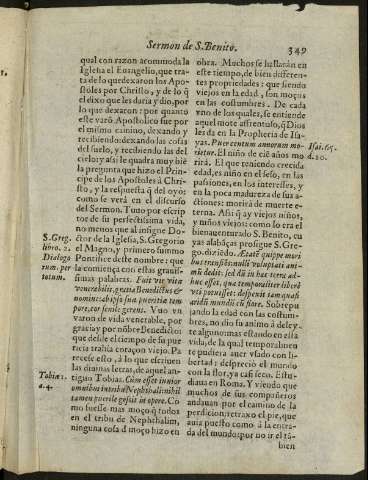 Sermon de S. Benito. 349
qual con razon acomoda la
Iglesia el Euangelio, que tra-
ta de lo que dexaron los Apo-
stoles por Christo, y de lo q̃
el dixo que les daria y dio, por
lo que dexaron: por quanto
este varõ Apostolico fue por
el mismo camino, dexando y
recibiendo: dexando las cosas
del suelo, y recibiendo las del
cielo: y assi le quadra muy biẽ
la pregunta que hizo el Prin-
cipe de los Apostoles à Chri-
sto, y la respuesta q̃ del oyò:
como se verà en el discurso
del Sermon. Tuuo por escrip
tor de su perfectissima vida,
no menos que al insigne Do-
ctor de la Iglesia, S. Gregorio
el Magno, y primero summo
Pontifice deste nombre: que
la comiença con estas grauis-
simas palabras. Fuit vir vitæ
venerabilis, gratia Benedictus &
nomine: ab ipso suæ pueritiæ tem
pore, cor senile gerens. Vuo vn
varon de vida venerable, por
gracia y por nõbre Benedicto:
que desde el tiempo de su pue
ricia traìa coraçon viejo. Pa
recese esto, à lo que escriuen
las diuinas letras, de aquel an-
tiguo Tobias. Cùm esset iunior
omnibus in tribu Nephthali: nihil
tamen puerile gessit in opere. Co
mo fuesse mas moço q̃ todos
en el tribu de Nephthalim,
ninguna cosa d moço hizo en
S. Greg.
libro. 2.
Dialogo
rum. per
totum.
Tobiæ 1.
a. 4.
obra. Muchos se hallaràn en
este tiempo, de bien differen-
tes propiedades: que siendo
viejos en la edad, son moços
en las costumbres. De cada
vno de los quales, se entiende
aquel mote affrentoso, q̃ Dios
les da en la Prophecia de Isa-
yas. Puer centum annorum mo-
rietur. El niño de ciẽ años mo
rirà. El que teniendo crecida
edad, es niño en el seso, en las
passiones, en los interesses, y
en la poca madureza de sus a-
ctiones: morirà de muerte e-
terna. Assi q̃ ay viejos niños,
y niños viejos: como lo era el
bienauenturado S. Benito, cu
yas alabãças prosigue S. Gre-
go. diziẽdo. Ætatẽ quippe mori
bus transiẽs: nulli voluptati ani-
mũ dedit: sed dũ in hac terra ad-
huc esset, quo temporaliter liberè
vti potuisset: despexit tamquã
aridũ mundũ cũ flore. Sobrepu
jando la edad con las costum-
bres, no dio su animo à deley-
te alguno: mas estando en essa
vida, de la qual temporalmen
te pudiera auer vsado con li-
bertad: despreciò el mundo
con la flor, ya casi seco. Estu-
diaua en Roma. Y viẽdo que
muchos de sus compañeros
andauan por el camino de la
perdicion: retraxo el pie, que
auia puesto como à la entra-
da del mundo: por no ir el tã-
bien
Isai. 65.
d. 20.